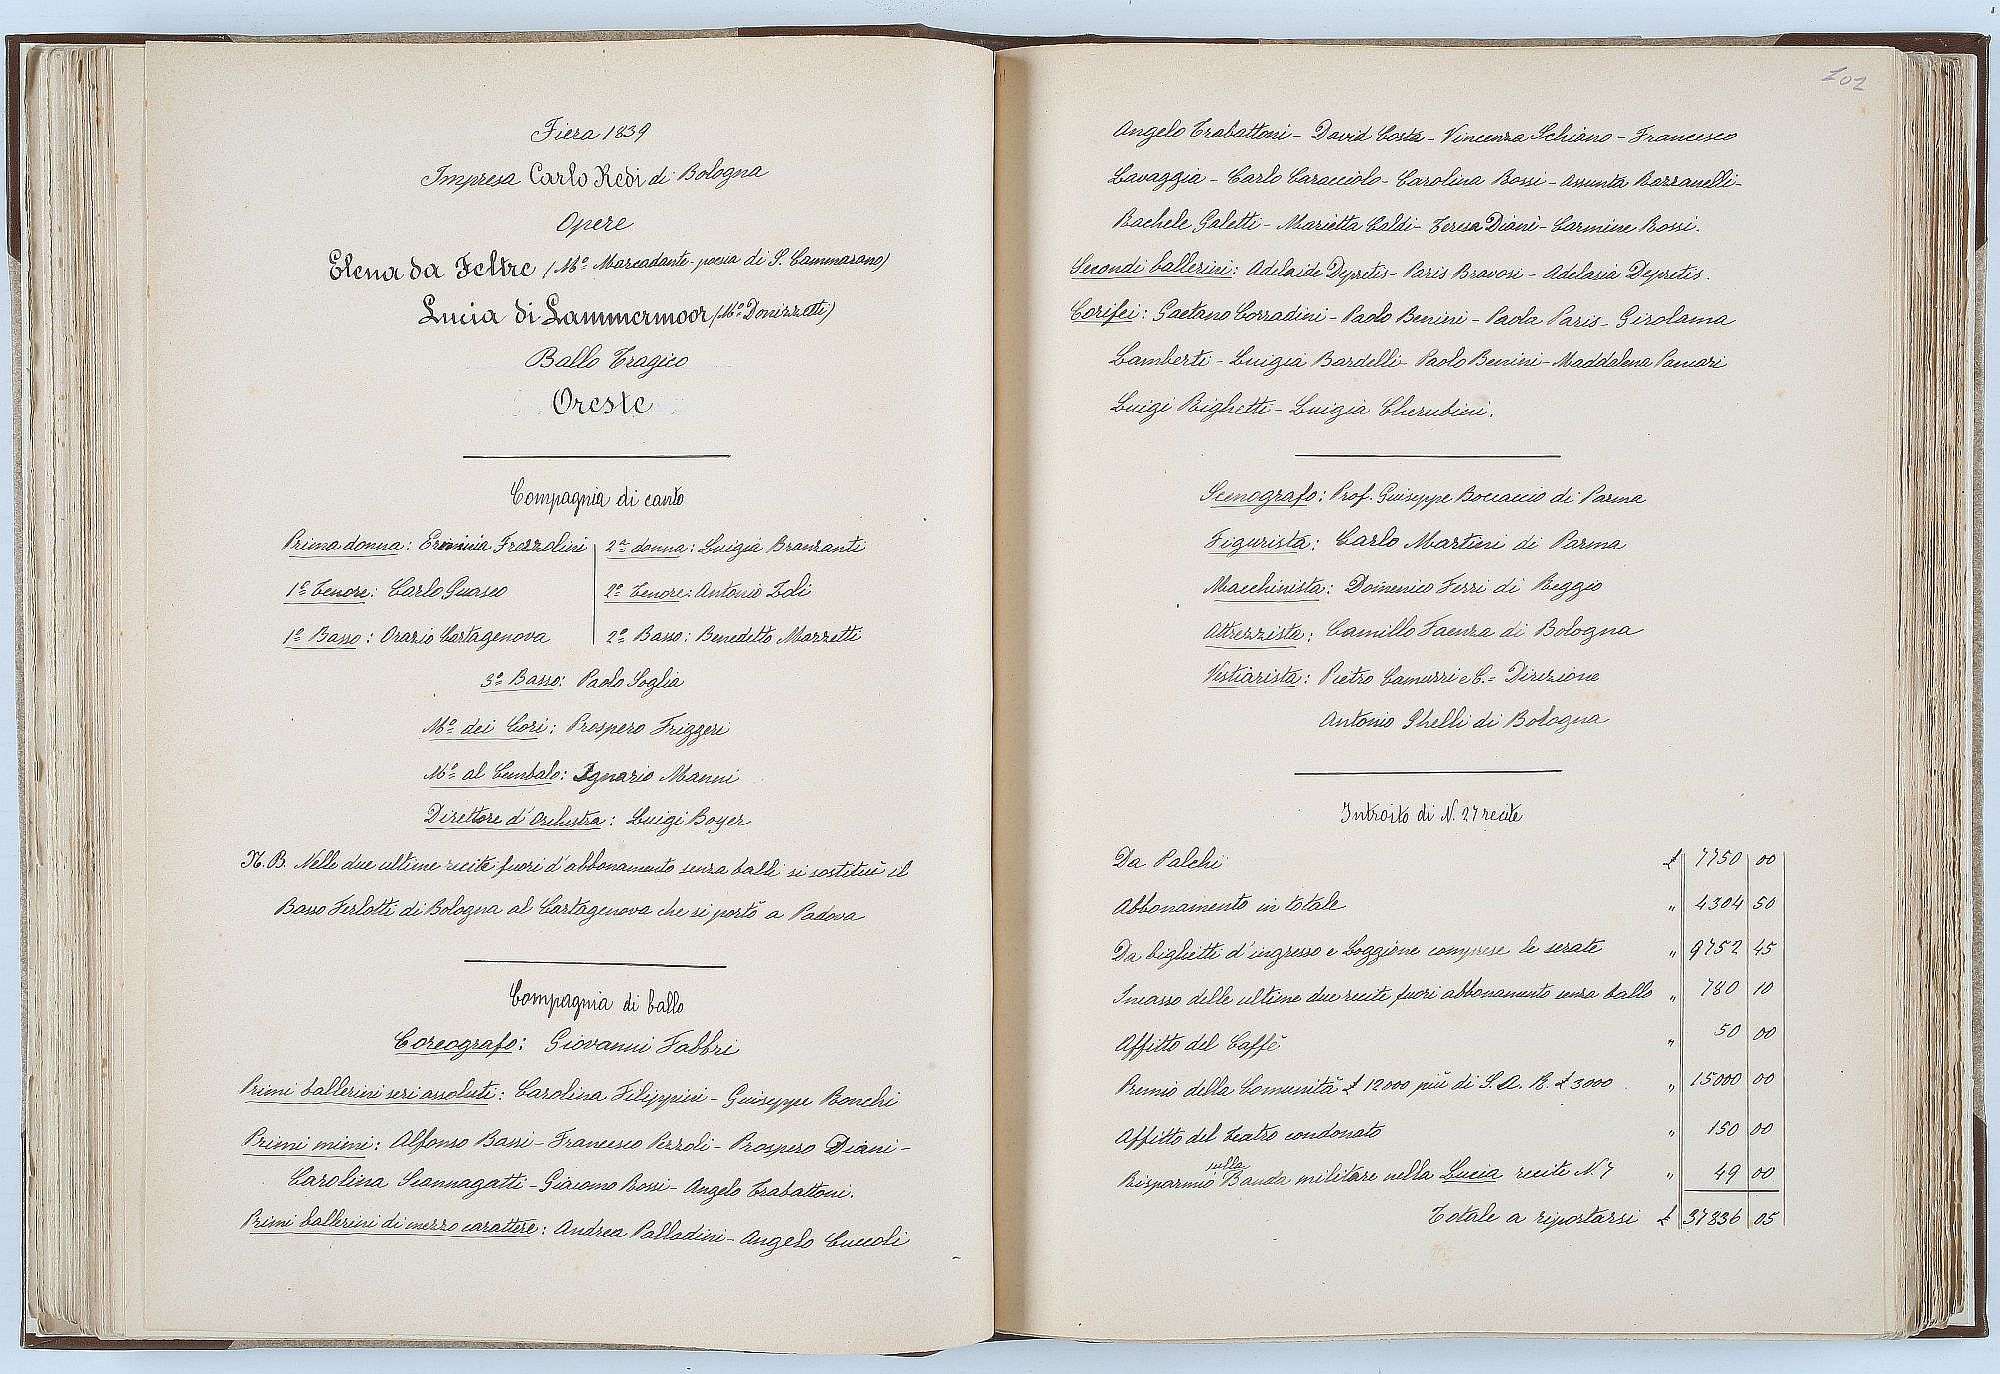 Fiera 1839
Impresa Carlo Redi di Bologna
Opere
Elena da Feltre (Mº Marcadante - poesia di S. Cammarano)
Lucia di Lammermoor (Mº Donizzetti)
Ballo Tragico
Oreste
Compagnia di canto
Prima donna: Erminia Frezzolini
2ª donna: Luigia Branzanti
1º Tenore: Carlo Guasco
2º Tenore: Antonio Zoli
1º Basso: Orazio Cartagenova
2º Basso: Benedetto Mazzetti
3º Basso: Paolo Soglia
Mº dei Cori: Prospero Friggeri
Mº al Cembalo: Ignazio Manni
Direttore d'Orchestra: Luigi Boyer
N.B. Nelle due ultime recite fuori d'abbonamento senza balli si sostituì il
Basso Ferlotti di Bologna al Cartagenova che si portò a Padova
Compagnia di ballo
Coreografo: Giovanni Fabbri
Primi ballerini seri assoluti: Carolina Filippini - Guiseppe Bonchi
Primi mimi: Alfonso Bassi - Francesco Pezzoli - Prospero Diani -
Carolina Scannagatti - Giacomo Rossi - Angelo Trabattoni.
Primi ballerini di mezzo carattere: Andrea Palladini - Angelo Cuccoli
102
Angelo Trabattoni - David Costa - Vincenza Schiano - Francesco
Lavaggia - Carlo Caracciolo - Carolina Rossi - Assunta Razzanelli -
Rachele Galetti - Marietta Caldi - Teresa Diani - Carmine Rossi.
Secondi ballerini: Adelaide Depretis - Paris Bravosi - Adelasia Depretis.
Corifei: Gaetano Corradini - Paolo Benini - Paola Paris - Girolama
Lamberti - Luigia Bardelli - Paolo Benini - Maddalena Pancari
Luigi Righetti - Luigia Cherubini.
Scenografo: Prof. Guiseppe Boccaccio di Parma
Figurista: Carlo Martini di Parma
Macchinista: Domenico Ferri di Reggio
Attrezzista: Camillo Faenza di Bologna
Vestiarista: Pietro Camurri e C. = Dirizione
Antonio Ghelli di Bologna
Introito di N. 27 recite
Da Palchi £ 7750 00
Abbonamento in totale " 4304 50
Da biglietti d'ingresso e Loggione comprese le serate " 9752 45
Incasso delle ultime due recite fuori abbonamento senza ballo " 780 10
Affitto del Caffè " 50 00
Premio della Comunità £ 12000 più di S. A. R. £ 3000 " 15000 00
Affitto del Teatro condonato " 150 00
Risparmio sulla Banda militare nella Lucia recite N. 7 " 49 00
Totale a riportarsi £ 37836 05